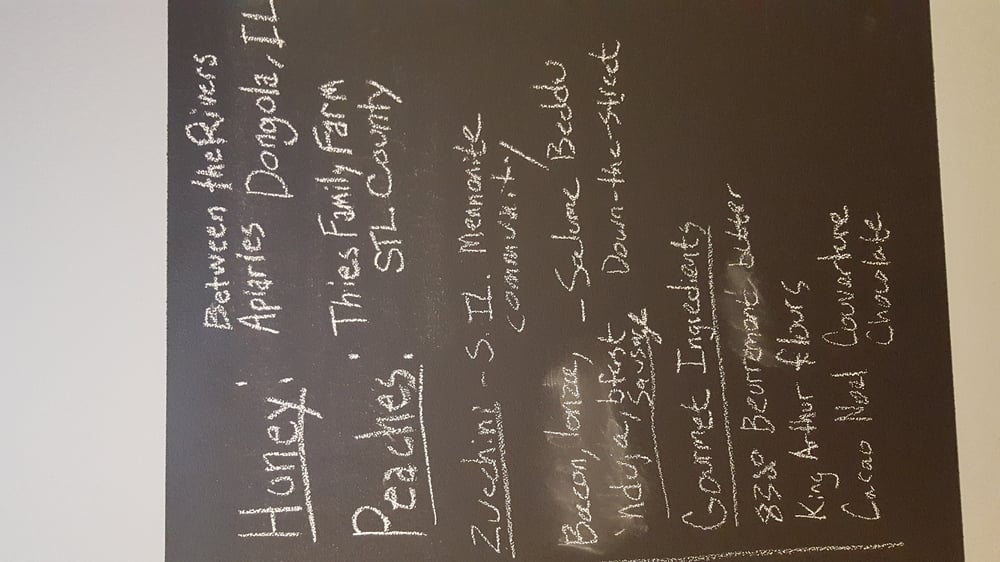 Honey: Between the Rivers
Apiaries Dongola, IL
Peaches: Thies Family Farm
STL County
Zucchini - S. IL. Mennonite
Community
Bacon, lonza, - Salume Beddu
'nduja, bfast Down-the-street
Sausage
Gourmet Ingredients
83% Beurremont butter
King Arthur flours
Cacao Noel Couverture
Chocolate